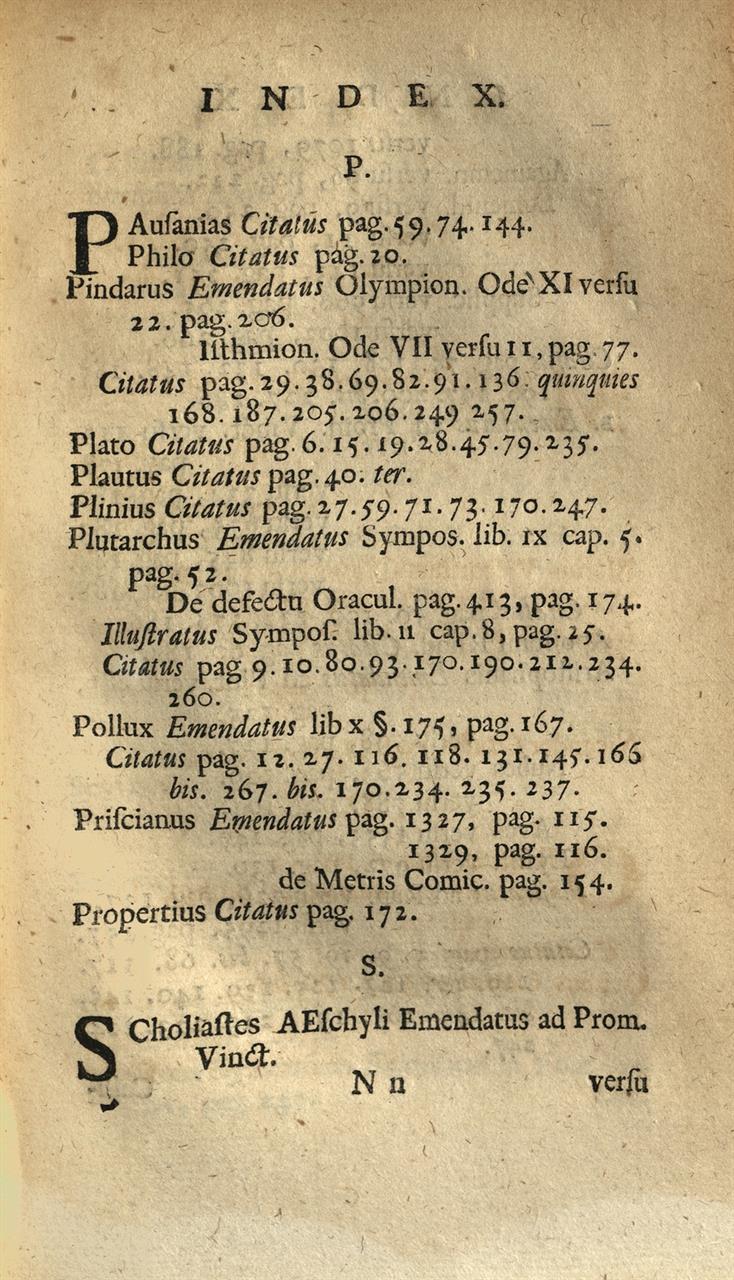 I N D E X.
P.
PAuſanias Citatus pag. 59. 74. 144.
Philo Citatus pag. 20.
Pindarus Emendatus Olympion. Ode XI verſu
22. pag. 206.
Iſthmion. Ode VII verſu 11, pag. 77.
Citatus pag. 29. 38. 69. 82. 91. 136. quinquies
168. 187. 205. 206. 249 257.
Plato Citatus pag. 6. 15. 19. 28. 45. 79. 235.
Plautus Citatus pag. 40. ter.
Plinius Citatus pag. 27. 59. 71. 73. 170. 247.
Plutarchus Emendatus Sympos. lib. IX cap. 5.
pag. 52.
De defectu Oracul. pag. 413, pag. 174.
Illuſtratus Sympoſ. lib. 11 cap. 8, pag. 25.
Citatus pag 9. 10. 80. 93. 170. 190. 212. 234.
260.
Pollux Emendatus lib x §. 175, pag. 167.
Citatus pag. 12. 27. 116. 118. 131. 145. 166
bis. 267. bis. 170. 234. 235. 237.
Priſcianus Emendatus pag. 1327, pag. 115.
1329, pag. 116.
de Metris Comic. pag. 154.
Propertius Citatus pag. 172.
S.
SCholiaſtes AEſchyli Emendatus ad Prom.
Vinct.
N n verſu